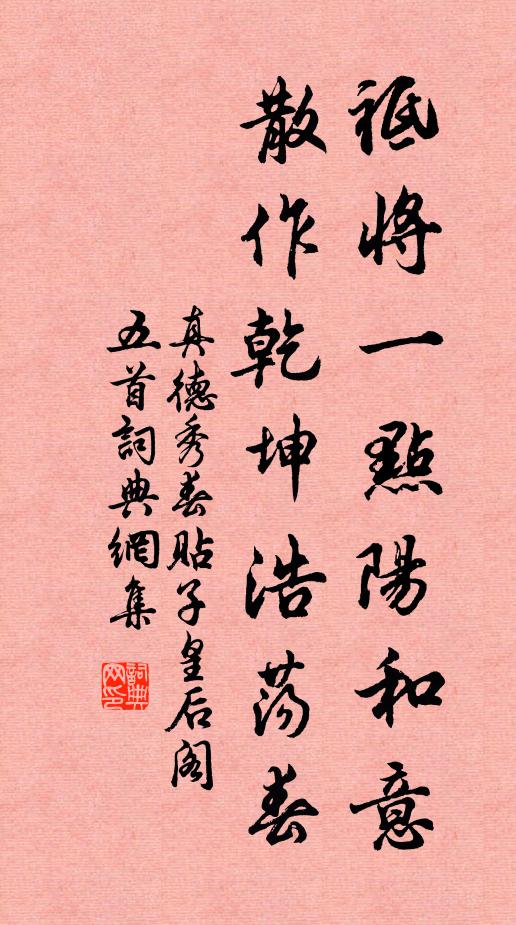 祗將一點陽和意
散作乾坤浩蕩春
真德秀春貼子皇后阁
五首詞典網集
詞典网印